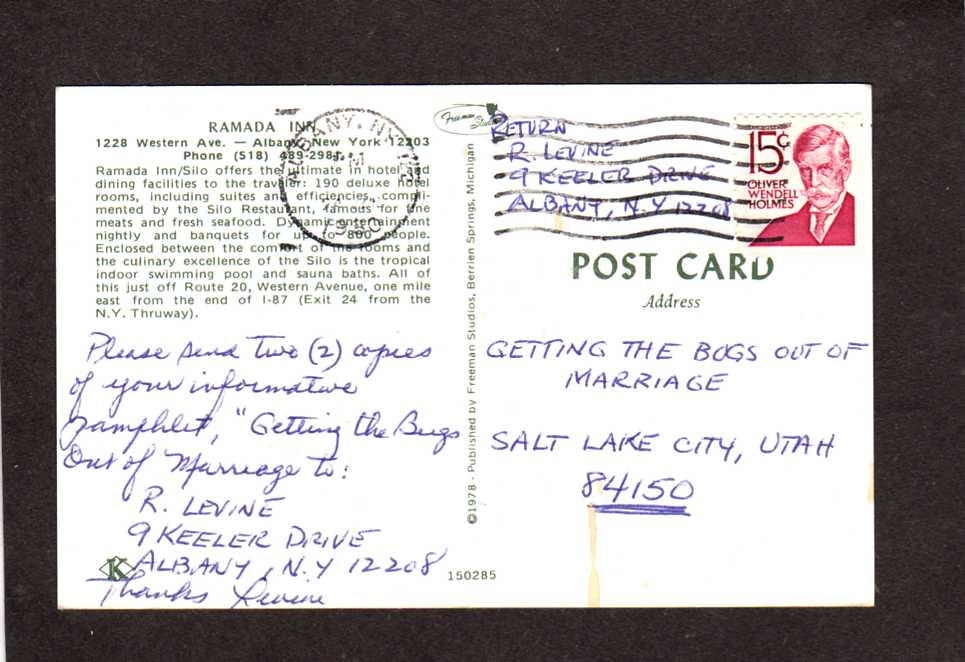 RAMADA INN
1228 Western Ave. — Albany, New York 12203
Phone (518) 489-2981
Ramada Inn/Silo offers the ultimate in hotel and
dining facilities to the traveler: 190 deluxe hotel
rooms, including suites and efficiencies, compli-
mented by the Silo Restaurant, famous for fine
meats and fresh seafood. Dynamic entertainment
nightly and banquets for up to 800 people.
Enclosed between the comfort of the rooms and
the culinary excellence of the Silo is the tropical
indoor swimming pool and sauna baths. All of
this just off Route 20, Western Avenue, one mile
east from the end of I-87 (Exit 24 from the
N.Y. Thruway).
Please send two (2) copies
of your informative
pamphlet, "Getting the Bugs
Out of Marriage to:
R. LEVINE
9 KEELER DRIVE
ALBANY, N.Y 12208
Thanks Levine
K
150285
©1978 - Published by Freeman Studios, Berrien Springs, Michigan
Freeman
Studios
ALBANY, NY
PM
1980
RETURN
R. LEVINE
9 KEELER DRIVE
ALBANY, N.Y 12208
15¢
OLIVER
WENDELL
HOLMES
POST CARD
Address
GETTING THE BUGS OUT OF
MARRIAGE
SALT LAKE CITY, UTAH
84150